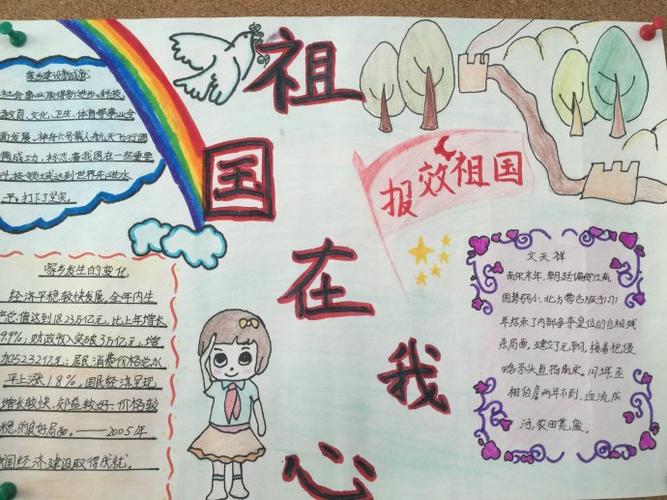 祖
国
在
我
心
报效祖国
社会事业取得新进步,科技、
教育、文化、卫生、体育等事业全
面发展。神舟六号载人航天飞行圆
满成功,标志着我国在一些重要
科技领域达到世界先进水
家乡发生的变化
经济平稳较快发展。全年国内生
产总值达到18.23万亿元,比上年增长
9.9%;财政收入突破3万亿元,增
加5232亿元;居民消费价格总水
平上涨1.8%。国民经济呈现
增长较快,效益较好,价格较
稳的良好局面。——2005年
我国经济建设取得成就。
文天祥
南宋末年,朝廷偏安江南,
国势弱小,北方蒙古族于1271
年结束了内部争夺皇位的自相残
杀局面,建立了元朝,接着把侵
略矛头直指南宋。